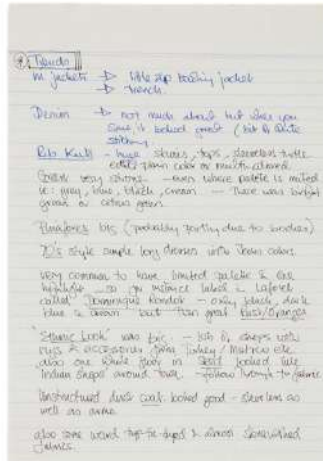 Trends
in jackets → little zip jacket
→ trench.
Denim → not much about but when you
saw it looked great (bit of white
stitching
Rib Knits - huge skirts, tops, sleeveless turtle
either plain color or multicolored
Green very strong - even where palette is muted
ie: grey, blue, black, cream - there was bright
green or citrus green.
Pinafores big (probably partly due to
70's style simple long dresses
very common to have limited palette & one
highlight so for instance label in Lafayet
called Dominique - only black, dark
blue & brown but then great
"Ethnic Look" was big - lots of shops with
rugs & accessories from Turkey / Morocco etc.
also one whole floor in looked like
Indian shops around town. - follow through to fabric
Unstructured coat looked good - sleeveless as
well as
also some weird tye-dyed & almost
fabrics.